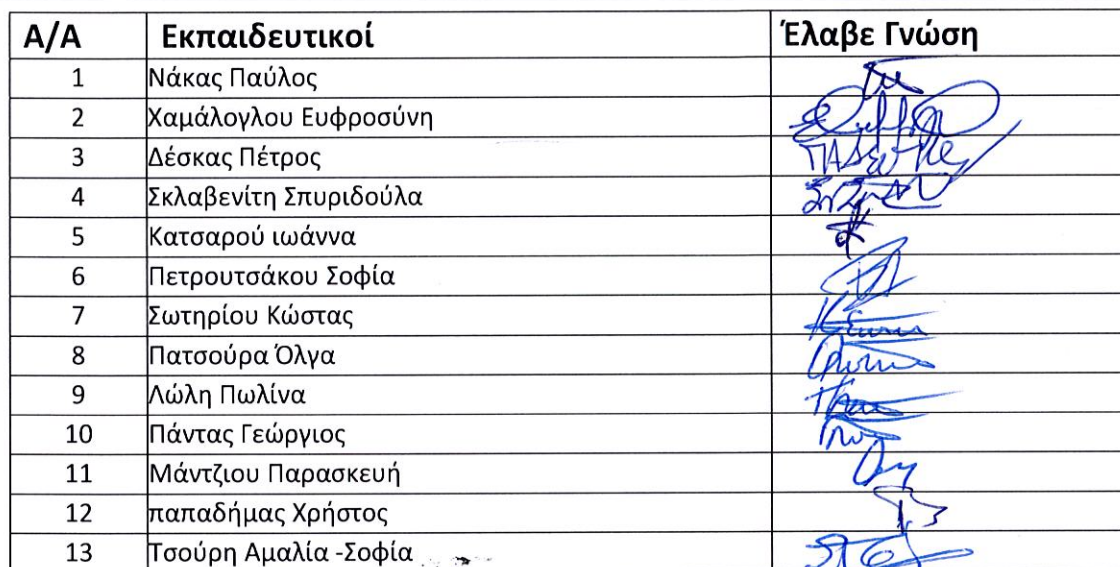 Α/Α Εκπαιδευτικοί Έλαβε Γνώση
1 Νάκας Παύλος
2 Χαμάλογλου Ευφροσύνη
3 Δέσκας Πέτρος
4 Σκλαβενίτη Σπυριδούλα
5 Κατσαρού ιωάννα
6 Πετρουτσάκου Σοφία
7 Σωτηρίου Κώστας
8 Πατσούρα Όλγα
9 Λώλη Πωλίνα
10 Πάντας Γεώργιος
11 Μάντζιου Παρασκευή
12 παπαδήμας Χρήστος
13 Τσούρη Αμαλία -Σοφία